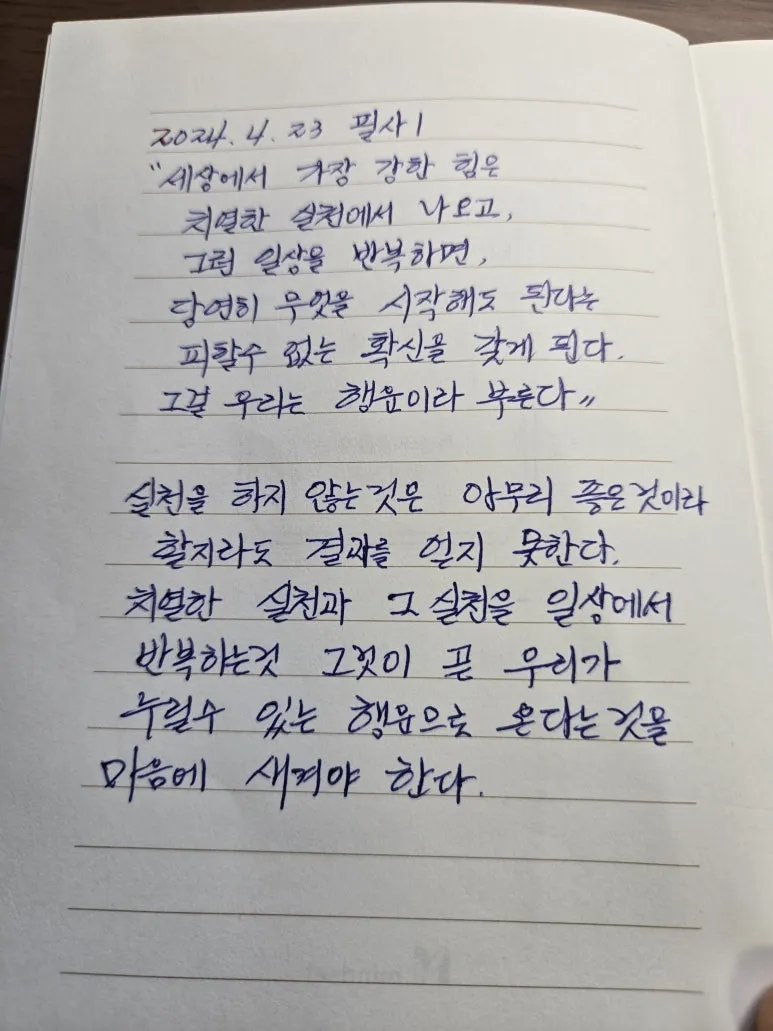 2024. 4. 23 필사 1
"세상에서 가장 강한 힘은
치열한 실천에서 나오고,
그런 일상을 반복하면,
당연히 무엇을 시작해도 된다는
피할수 없는 확신을 갖게 된다.
그걸 우리는 행운이라 부른다"
실천을 하지 않는것은 아무리 좋은것이라
할지라도 결과를 얻지 못한다.
치열한 실천과 그 실천을 일상에서
반복하는것 그것이 곧 우리가
누릴수 있는 행운으로 온다는것을
마음에 새겨야 한다.